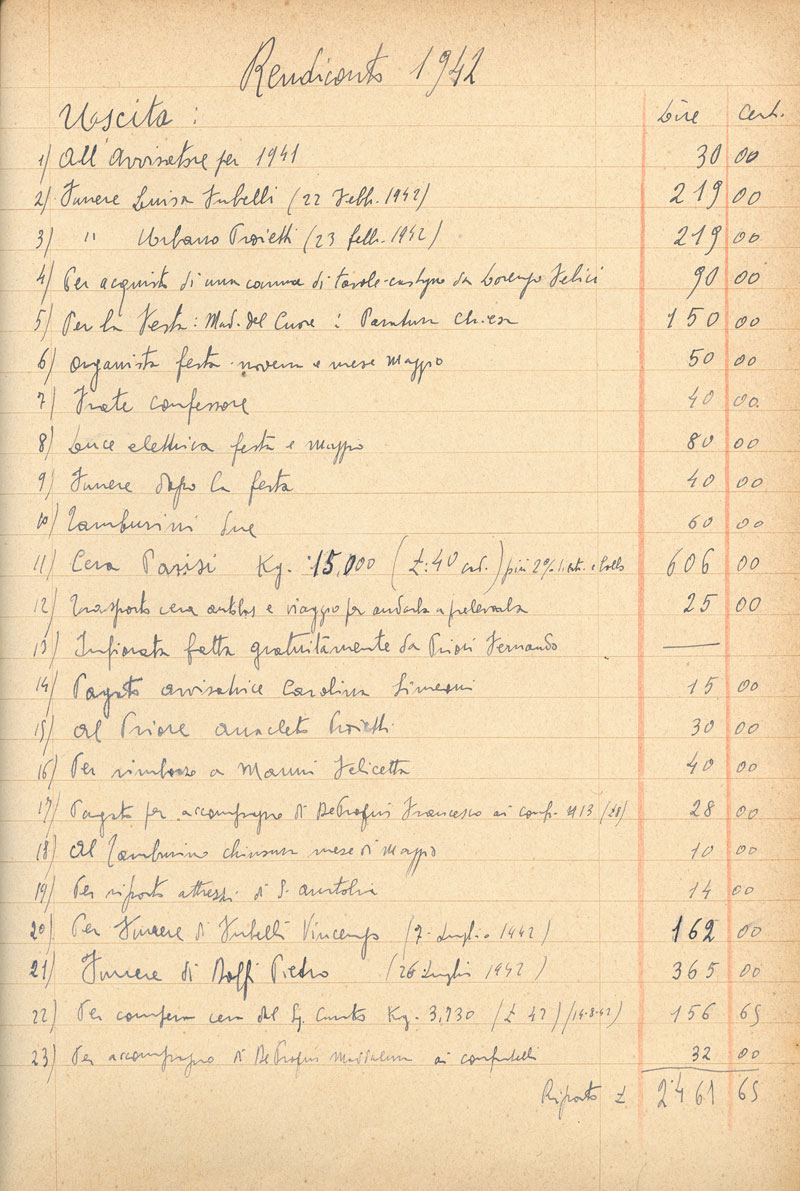 Rendiconto 1942
Uscita : Lire Cent.
1) All'Avvisatore per 1941 30 00
2) Funere Luisa Fubelli (22 Febb. 1942) 219 00
3) " Urbano Proietti (23 febb. 1942) 219 00
4) Per acquisto di una canna di tavole-castagno da Lorenzo Felici 90 00
5) Per la Festa : Mad. del Cuore : Paratura chiesa 150 00
6) Organista festa - novena e mese Maggio 50 00
7) Frate confessore 40 00
8) Luce elettrica festa e Maggio 80 00
9) Funere dopo la festa 40 00
10) Tamburini due 60 00
11) Cera Parisi Kg. 15,000 (£: 40 cad.) più 2% e bollo 606 00
12) Trasporto cera e viaggio per andarla a prelevarla 25 00
13) Infiorata fatta gratuitamente da Priori Fernando —
14) Pagato avvisatrice Carolina Simeoni 15 00
15) Al Priore Anacleto Proietti 30 00
16) Per rimborso a Manni Felicetta 40 00
17) Pagato per accompagno di De Francesco ai conf. N 13 28 00
18) Al Tamburino chiusura mese di Maggio 10 00
19) Per riporto attrezzi di S. Anatolia 14 00
20) Per Funere di Fubelli Vincenzo (7. Luglio 1942) 162 00
21) Funere di Pietro (26 Luglio 1942) 365 00
22) Per compera cera del Sg. Kg. 3,730 (£ 42) (14-8-42) 156 65
23) Per accompagno di De Maddalena ai confratelli 32 00
Riporto £ 2461 65